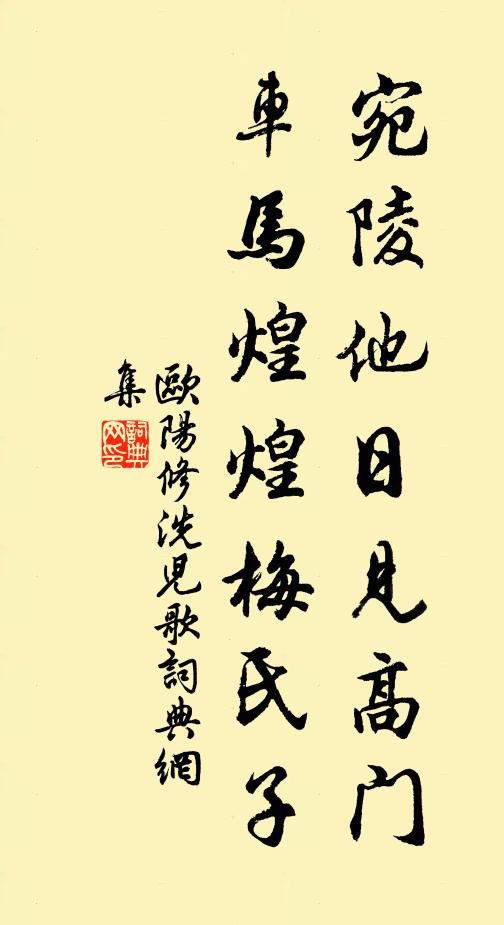 宛陵他日見高门
車馬煌煌梅氏子
歐陽修洗兒歌詞典網
集
詞典
网印